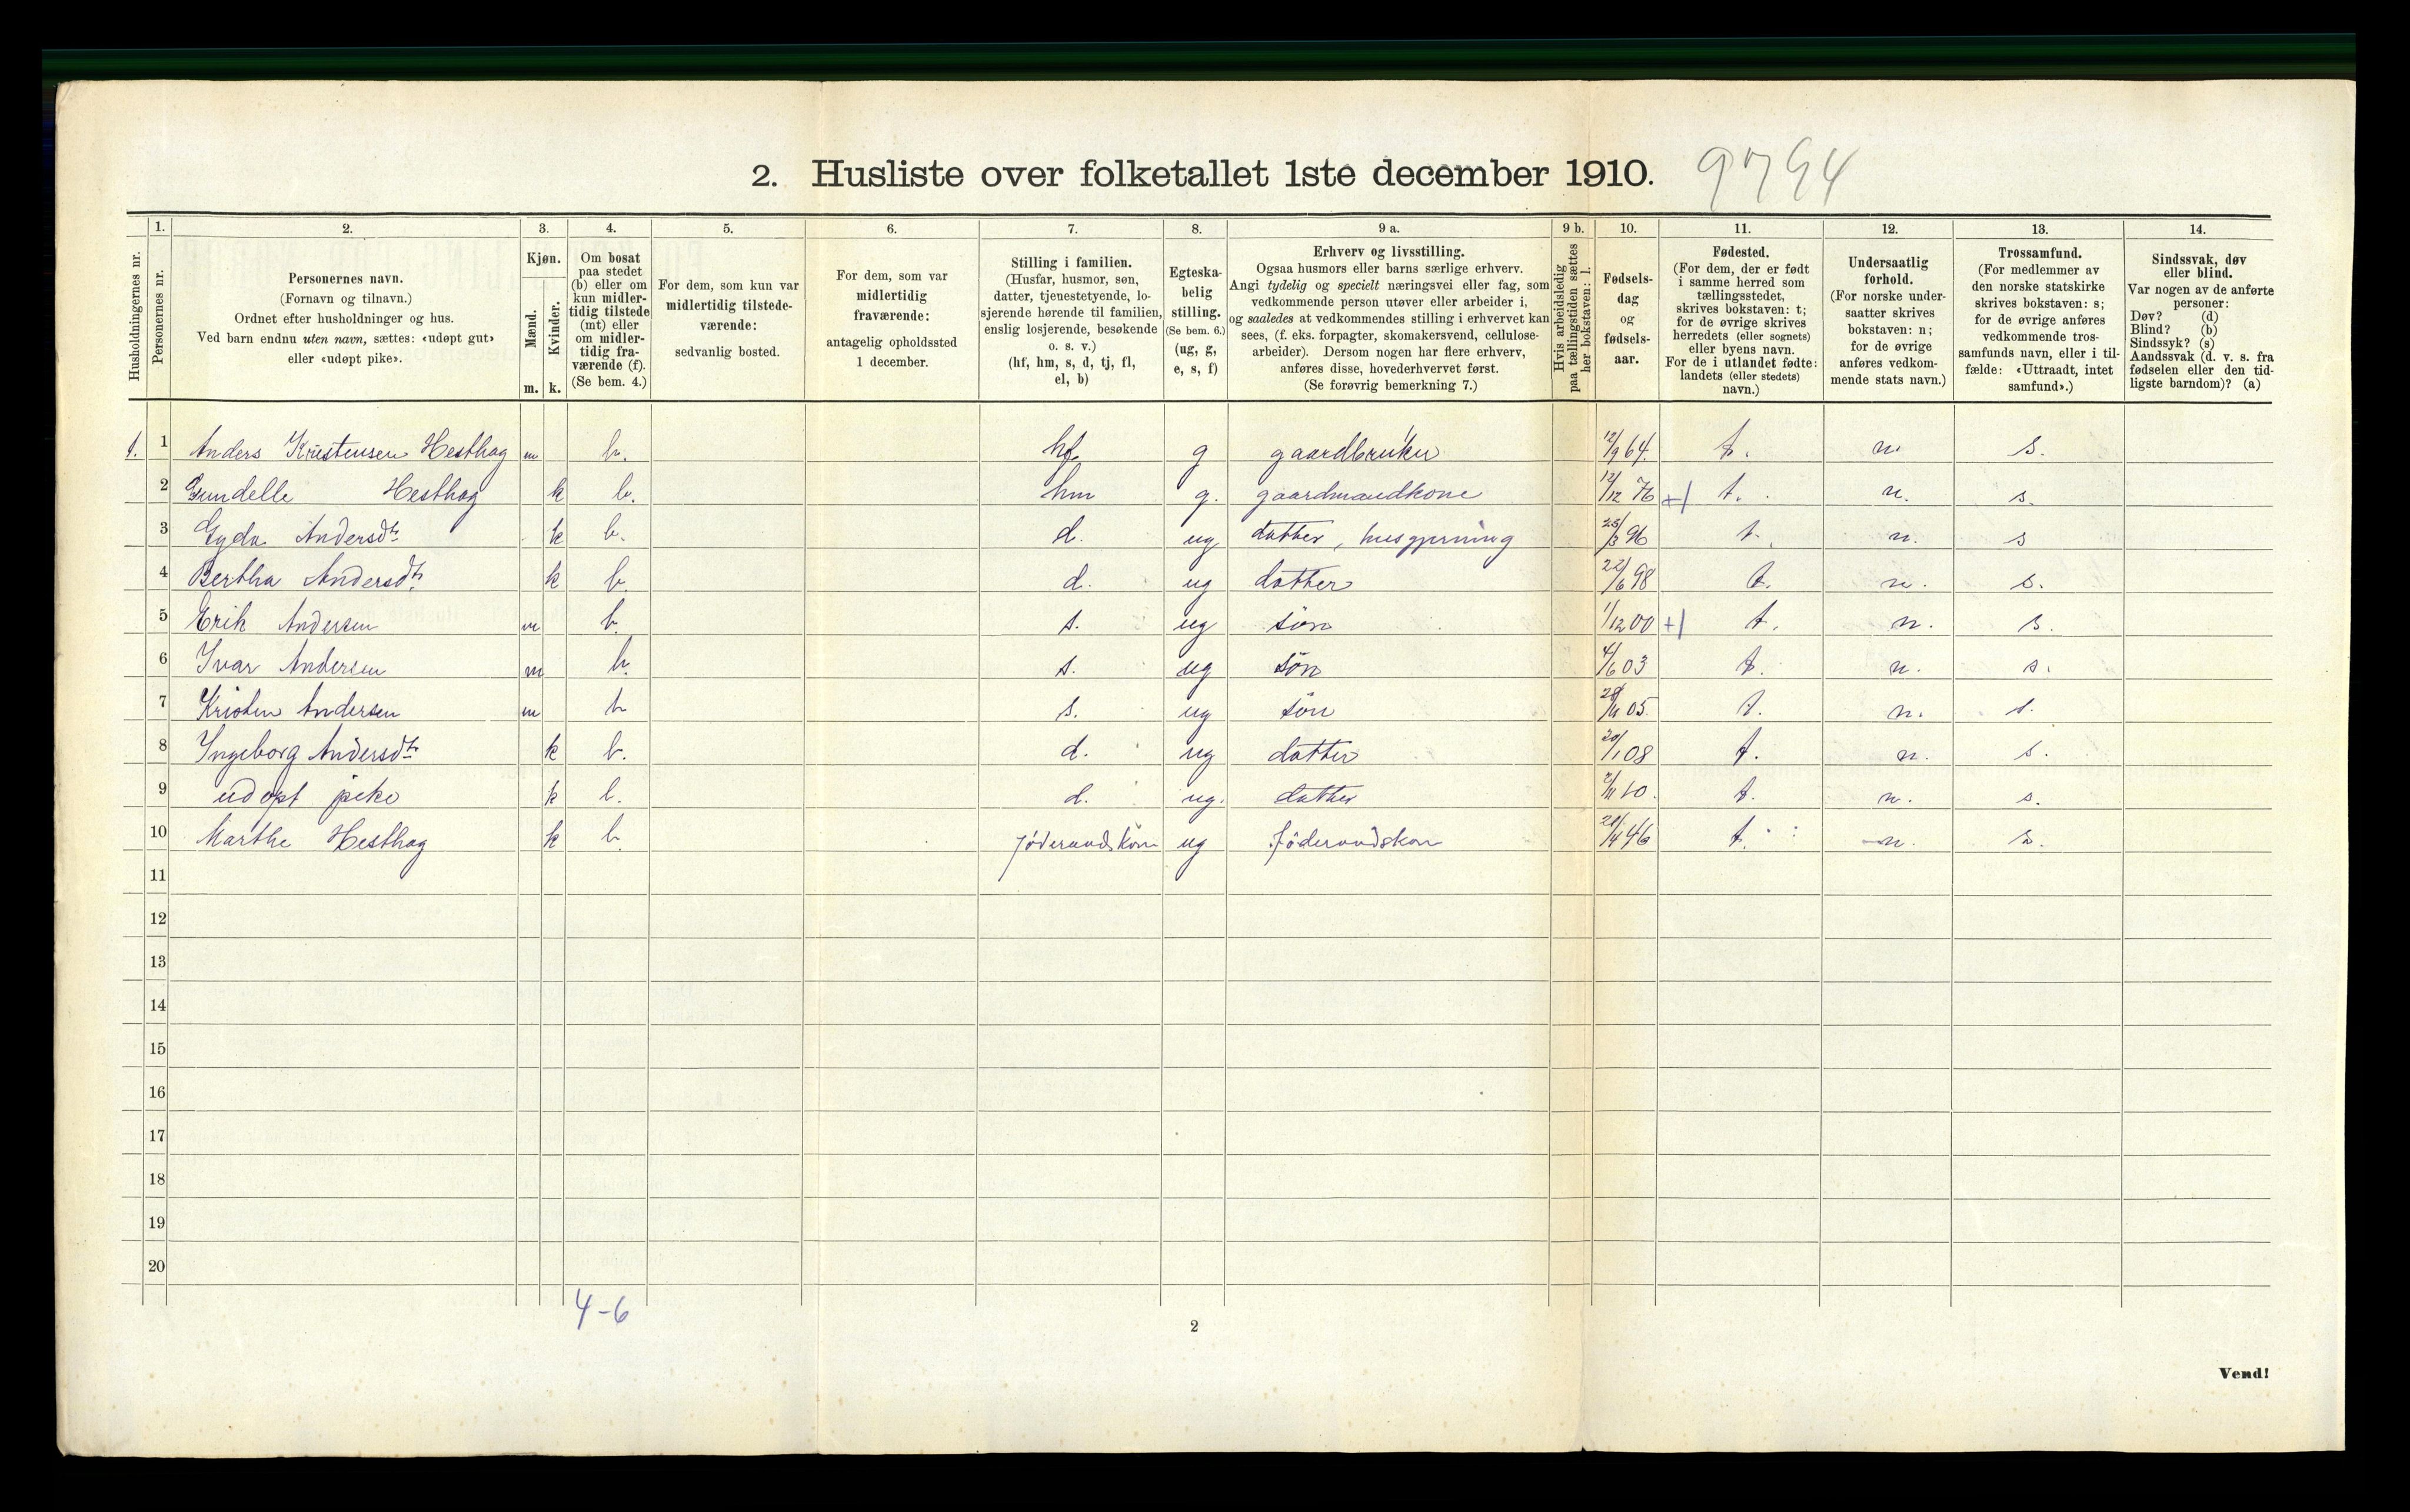 2. Husliste over folketallet 1ste december 1910. 9794
Husholdningernes nr.
1.
Personernes nr.
2.
Personernes navn.
(Fornavn og tilnavn.)
Ordnet efter husholdninger og hus.
Ved barn endnu uten navn, sættes: «udøpt gut»
eller «udøpt pike».
3.
Kjøn.
Mænd.
m.
Kvinder.
k.
4.
Om bosat
paa stedet
(b) eller om
kun midler-
tidig tilstede
(mt) eller
om midler-
tidig fra-
værende (f).
(Se bem. 4.)
5.
For dem, som kun var
midlertidig tilstede-
værende:
sedvanlig bosted.
6.
For dem, som var
midlertidig
fraværende:
antagelig opholdssted
1 december.
7.
Stilling i familien.
(Husfar, husmor, søn,
datter, tjenestetyende, lo-
sjerende hørende til familien,
enslig losjerende, besøkende
o. s. v.)
(hf, hm, s, d, tj, fl,
el, b)
8.
Egteska-
belig
stilling.
(Se bem. 6.)
(ug, g,
e, s, f)
9 a.
Erhverv og livsstilling.
Ogsaa husmors eller barns særlige erhverv.
Angi tydelig og specielt næringsvei eller fag, som
vedkommende person utøver eller arbeider i,
og saaledes at vedkommendes stilling i erhvervet kan
sees, (f. eks. forpagter, skomakersvend, cellulose-
arbeider). Dersom nogen har flere erhverv,
anføres disse, hovederhvervet først.
(Se forøvrig bemerkning 7.)
9 b.
Hvis arbeidsledig
paa tællingstiden sættes
her bokstaven: l.
10.
Fødsels-
dag
og
fødsels-
aar.
11.
Fødested.
(For dem, der er født
i samme herred som
tællingsstedet,
skrives bokstaven: t;
for de øvrige skrives
herredets (eller sognets)
eller byens navn.
For de i utlandet fødte:
landets (eller stedets)
navn.)
12.
Undersaatlig
forhold.
(For norske under-
saatter skrives
bokstaven: n;
for de øvrige
anføres vedkom-
mende stats navn.)
13.
Trossamfund.
(For medlemmer av
den norske statskirke
skrives bokstaven: s;
for de øvrige anføres
vedkommende tros-
samfunds navn, eller i til-
fælde: «Uttraadt, intet
samfund».)
14.
Sindssvak, døv
eller blind.
Var nogen av de anførte
personer:
Døv? (d)
Blind? (b)
Sindssyk? (s)
Aandssvak (d. v. s. fra
fødselen eller den tid-
ligste barndom)? (a)
1. 1 Anders Kristensen Hesthag m b. hf g gaardbruker 12/9 64. t. n. s.
2 Gundelle Hesthag k b. hm g. gaardmandkone 12/12 76 +1 t. n. s.
3 Gyda Andersdtr k b. d. ug datter, husgjerning 25/3 96 t. n. s
4 Bertha Andersdtr k b. d. ug datter 22/6 98 t. n. s.
5 Erik Andersen m b. s. ug søn 1/12 00 +1 t. n. s.
6 Ivar Andersen m b. s. ug søn 4/6 03 t. n. s.
7 Kristen Andersen m b s. ug søn 05 t. n. s.
8 Ingeborg Andersdtr k b. d. ug datter 20/1 08 t. n. s.
9 udøpt pike k b. d. ug. datter 2/11 10. t. n. s.
10 Marthe Hesthag k b. føderaadskon ug føderaadskon 46 t. n. s.
11
12
13
14
15
16
17
18
19
20
4-6
2
Vend!